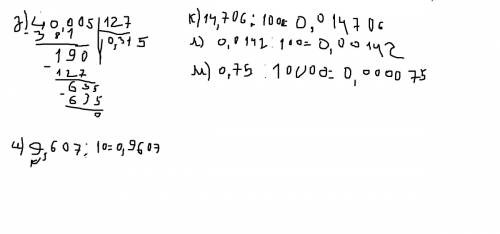 з) 40,005 | 127
- 38 1 | 0,315
190
- 127
635
- 635
0
и) 9,607 : 10 = 0,9607
к) 14,706 : 1000 = 0,014706
л) 0,0142 : 10 = 0,00142
м) 0,75 : 10000 = 0,000075